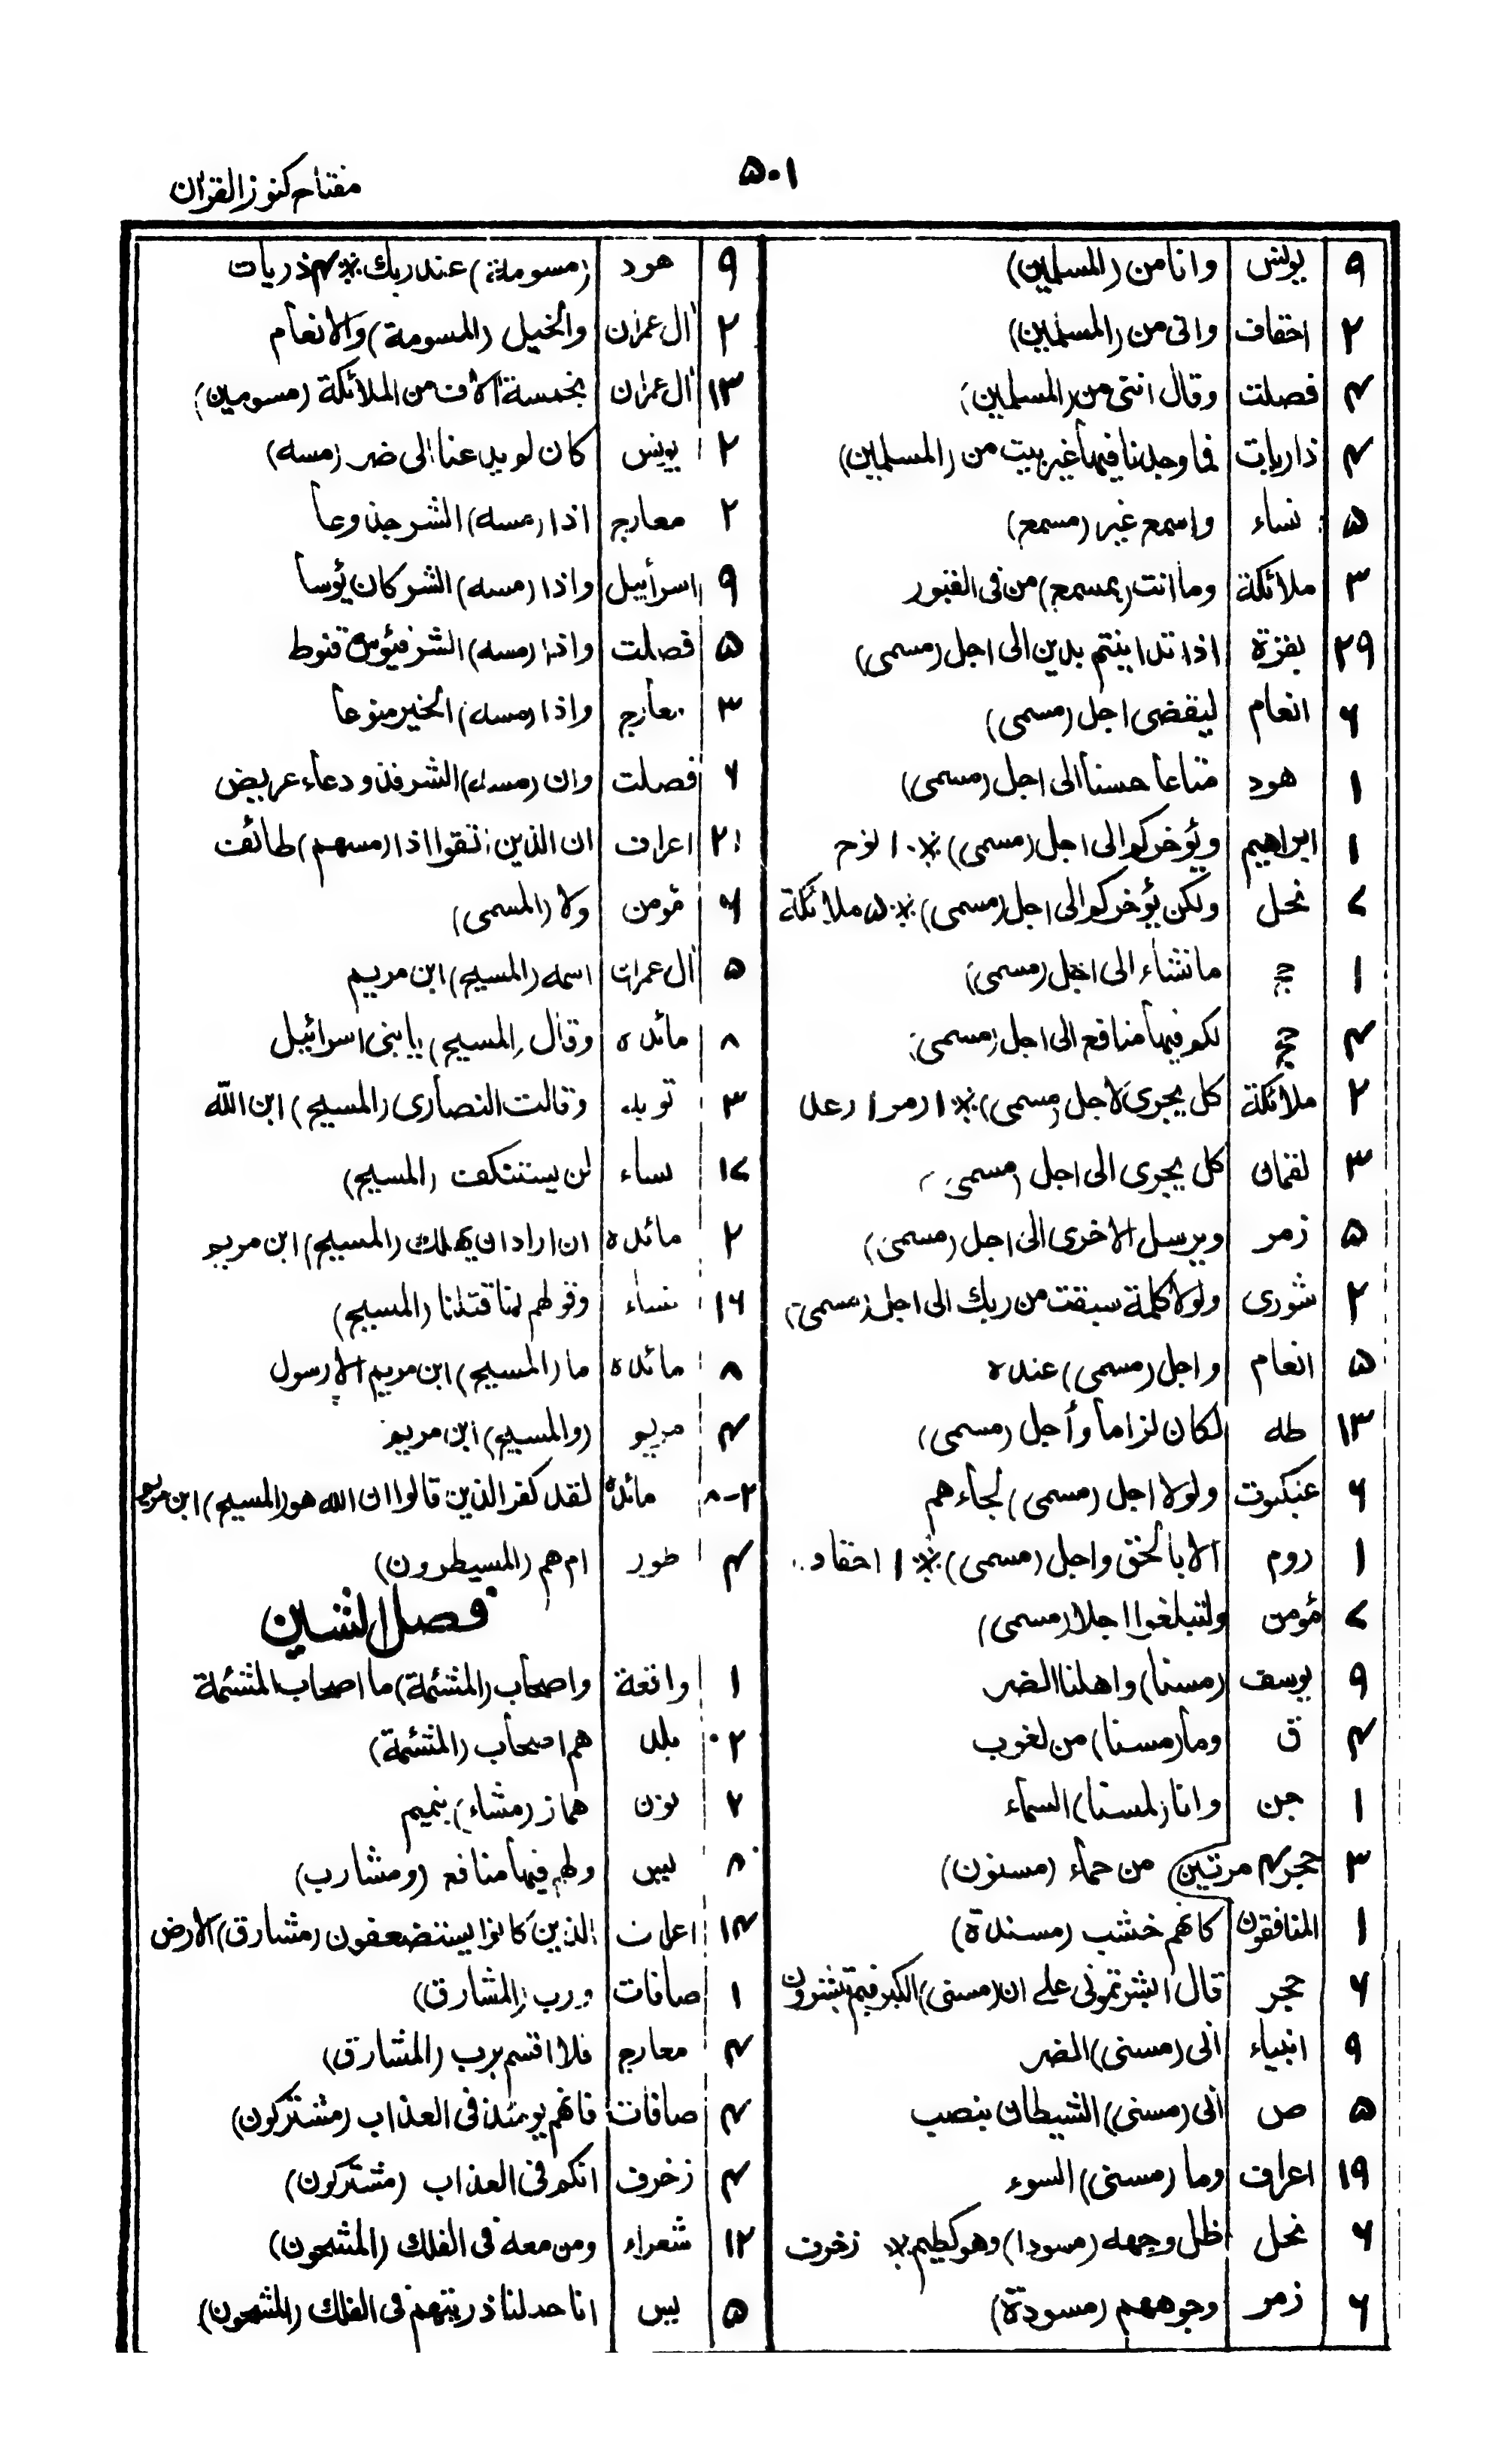 ۵۰۱
مفتاح کنوز القرآن
۹ یونس وانا من (المسلمین)
۲ احقاف وانی من (المسلمین)
۴ فصلت وقال اننی من (المسلمین)
۴ ذاریات فما وجدنا فیها غیر بیت من (المسلمین)
۵ نساء واسمع غیر (مسمع)
۳ ملائکة وما انت (بمسمع) من فی القبور
۳۹ بقرة اذا تداینتم بدین الی اجل (مسمی)
۶ انعام لیقضی اجل (مسمی)
۱ هود متاعا حسنا الی اجل (مسمی)
۱ ابراهیم ویؤخرکم الی اجل (مسمی) ※ ۱ نوح
۷ نحل ولکن یؤخرکم الی اجل (مسمی) ※ ۵ ملائکة
۱ حج ما نشاء الی اجل (مسمی)
۴ حج لکم فیها منافع الی اجل (مسمی)
۲ ملائکة کل یجری لاجل (مسمی) ※ ۱ زمر ۱ رعد
۳ لقمان کل یجری الی اجل (مسمی)
۵ زمر ویرسل الاخری الی اجل (مسمی)
۲ شوری ولولا کلمة سبقت من ربك الی اجل (مسمی)
۵ انعام واجل (مسمی) عنده
۱۳ طه لکان لزاما وأجل (مسمی)
۶ عنکبوت ولولا اجل (مسمی) لجاءهم
۱ روم الا بالحق واجل (مسمی) ※ ۱ احقاف
۷ مؤمن ولتبلغوا اجلا (مسمی)
۹ یوسف (مسنا) واهلنا الضر
۴ ق وما (مسنا) من لغوب
۱ جن وانا (لمسنا) السماء
۳ حجر ۴ مرتین من حماء (مسنون)
۱ المنافقون کانهم خشب (مسندة)
۶ حجر قال ابشرتمونی علی ان (مسنی) الکبر فبم تبشرون
۹ انبیاء انی (مسنی) الضر
۵ ص انی (مسنی) الشیطان بنصب
۱۹ اعراف وما (مسنی) السوء
۶ نحل ظل وجهه (مسودا) وهو کظیم ※ زخرف
۶ زمر وجوههم (مسودة)
۹ هود (مسومة) عند ربك ※ ۴ ذریات
۲ آل عمران والخیل (المسومة) والانعام
۱۳ آل عمران بخمسة آلاف من الملائکة (مسومین)
۲ یونس کان لم یدعنا الی ضر (مسه)
۲ معارج اذا (مسه) الشر جذوعا
۹ اسرأیل واذا (مسه) الشر کان یؤسا
۵ فصلت واذا (مسه) الشر فیؤس قنوط
۳ معارج واذا (مسه) الخیر منوعا
۶ فصلت وان (مسه) الشر فذو دعاء عریض
۲۱ اعراف ان الذین اتقوا اذا (مسهم) طائف
۶ مؤمن ولا (المسمی)
۵ آل عمران اسمه (المسیح) ابن مریم
۸ مائده وقال (المسیح) یا بنی اسرائیل
۳ توبه وقالت النصاری (المسیح) ابن الله
۱۷ نساء لن یستنکف (المسیح)
۲ مائده ان اراد ان یهلك (المسیح) ابن مریم
۱۶ نساء وقولهم انا قتلنا (المسیح)
۸ مائده ما (المسیح) ابن مریم الا رسول
۴ مریم (والمسیح) ابن مریم
۲-۸ مائده لقد کفر الذین قالوا ان الله هو (المسیح) ابن مریم
۴ طور ام هم (المسیطرون)
فصل الشین
۱ واقعة واصحاب (المشئمة) ما اصحاب المشئمة
۲ بلد هم اصحاب (المشئمة)
۲ نون هماز (مشاء) بنمیم
۸ یس ولهم فیها منافع (ومشارب)
۱۴ اعراف الذین کانوا یستضعفون (مشارق) الارض
۱ صافات ورب (المشارق)
۴ معارج فلا اقسم برب (المشارق)
۴ صافات فانهم یومئذ فی العذاب (مشترکون)
۴ زخرف انکم فی العذاب (مشترکون)
۱۲ شعراء ومن معه فی الفلك (المشحون)
۵ یس انا حملنا ذریتهم فی الفلك (المشحون)